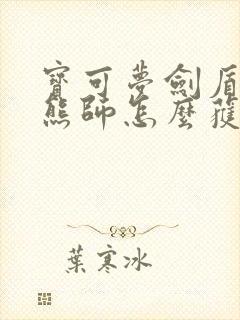 寶可夢劍盾
熊師怎麼獲
葉寒冰